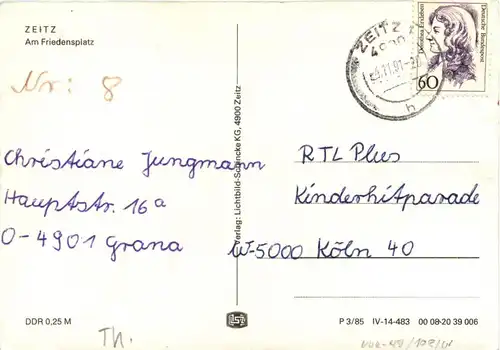 ZEITZ
Am Friedensplatz
Nr: 8
Christiane Jungmann
Hauptstr. 16a
O-4901 Grana
Verlag: Lichtbild- KG, 4900 Zeitz
ZEITZ 1
4900
.11.91-2
h
Dorothea Erxleben
Deutsche Bundespost
60
RTL Plus
Kinderhitparade
W-5000 Köln 40
DDR 0,25 M
Th.
P 3/85 IV-14-483 00 08 20 39 006